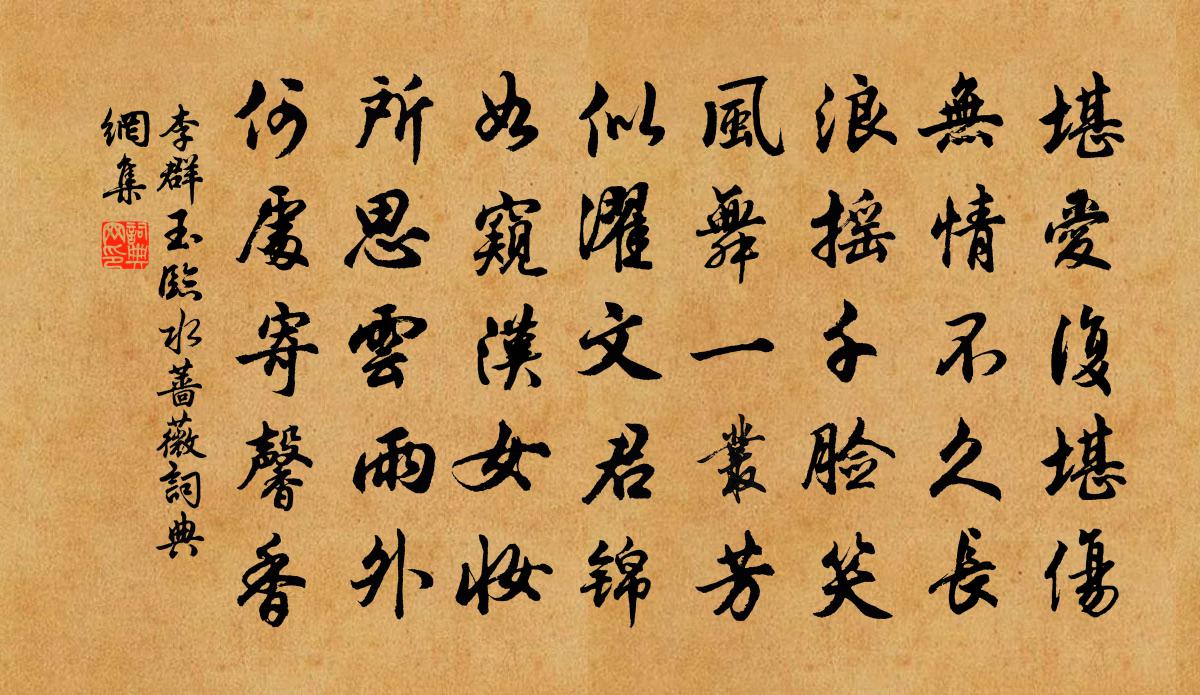 堪愛復堪傷
無情不久長
浪摇千脸笑
風舞一叢芳
似濯文君锦
如窺漢女妝
所思雲雨外
何處寄馨香
李群玉臨水薔薇詞典
網集
詞典
网印